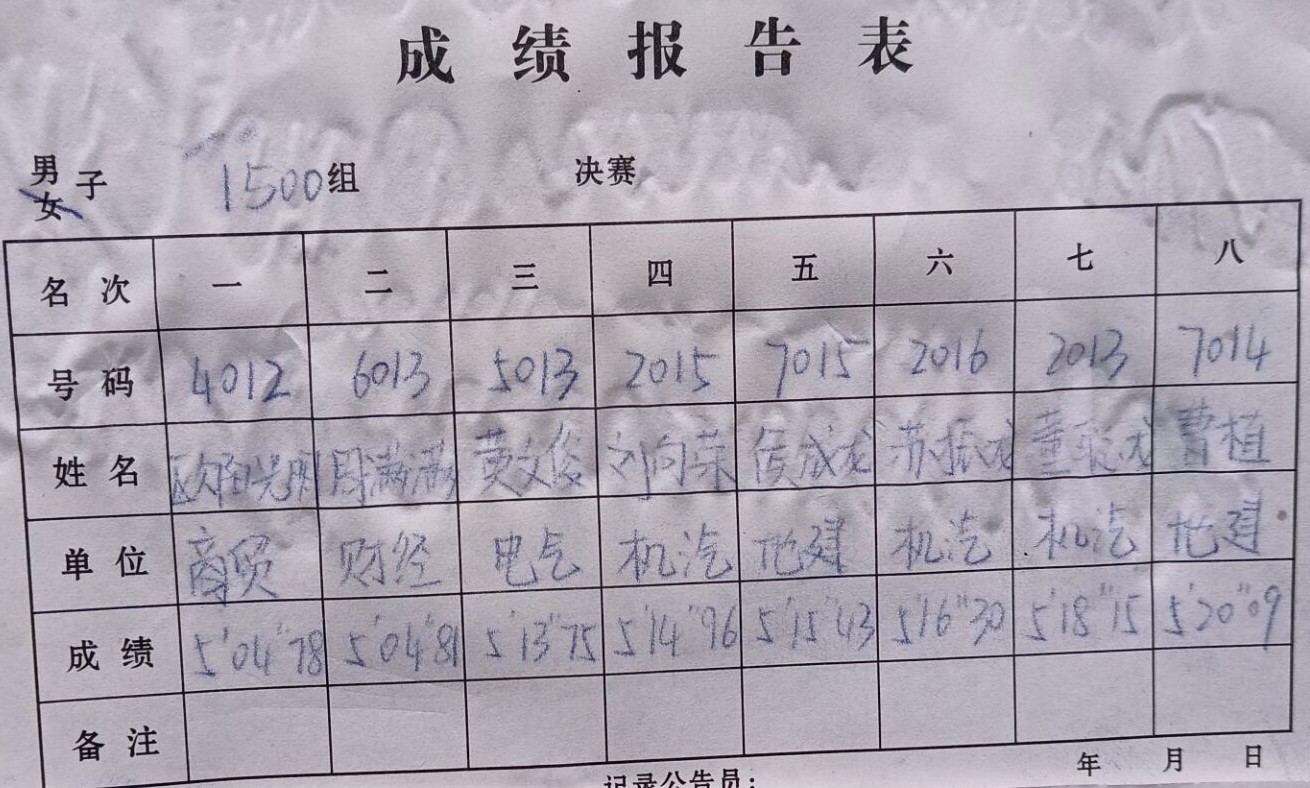 成绩报告表
男子
女
1500组 决赛
名次 一 二 三 四 五 六 七 八
号码 4012 6013 5013 2015 7015 2016 2013 7014
姓名 欧阳光明 周满满 黄文俊 刘向荣 侯成龙 苏振龙 董 龙 曹植
单位 商贸 财经 电气 机汽 地建 机汽 机汽 地建
成绩 5'04"78 5'04"81 5'13"75 5'14"96 5'15"43 5'16"30 5'18"15 5'20"09
备注
年 月 日
记录公告员：